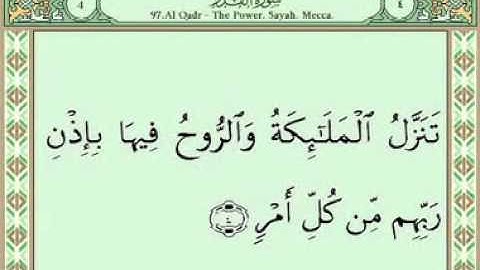 4 97.Al Qadr - The Power. 5ayah. Mecca. سورة القدر ٤
تَنَزَّلُ ٱلْمَلَٰٓئِكَةُ وَٱلرُّوحُ فِيهَا بِإِذْنِ
رَبِّهِم مِّن كُلِّ أَمْرٍ ٤